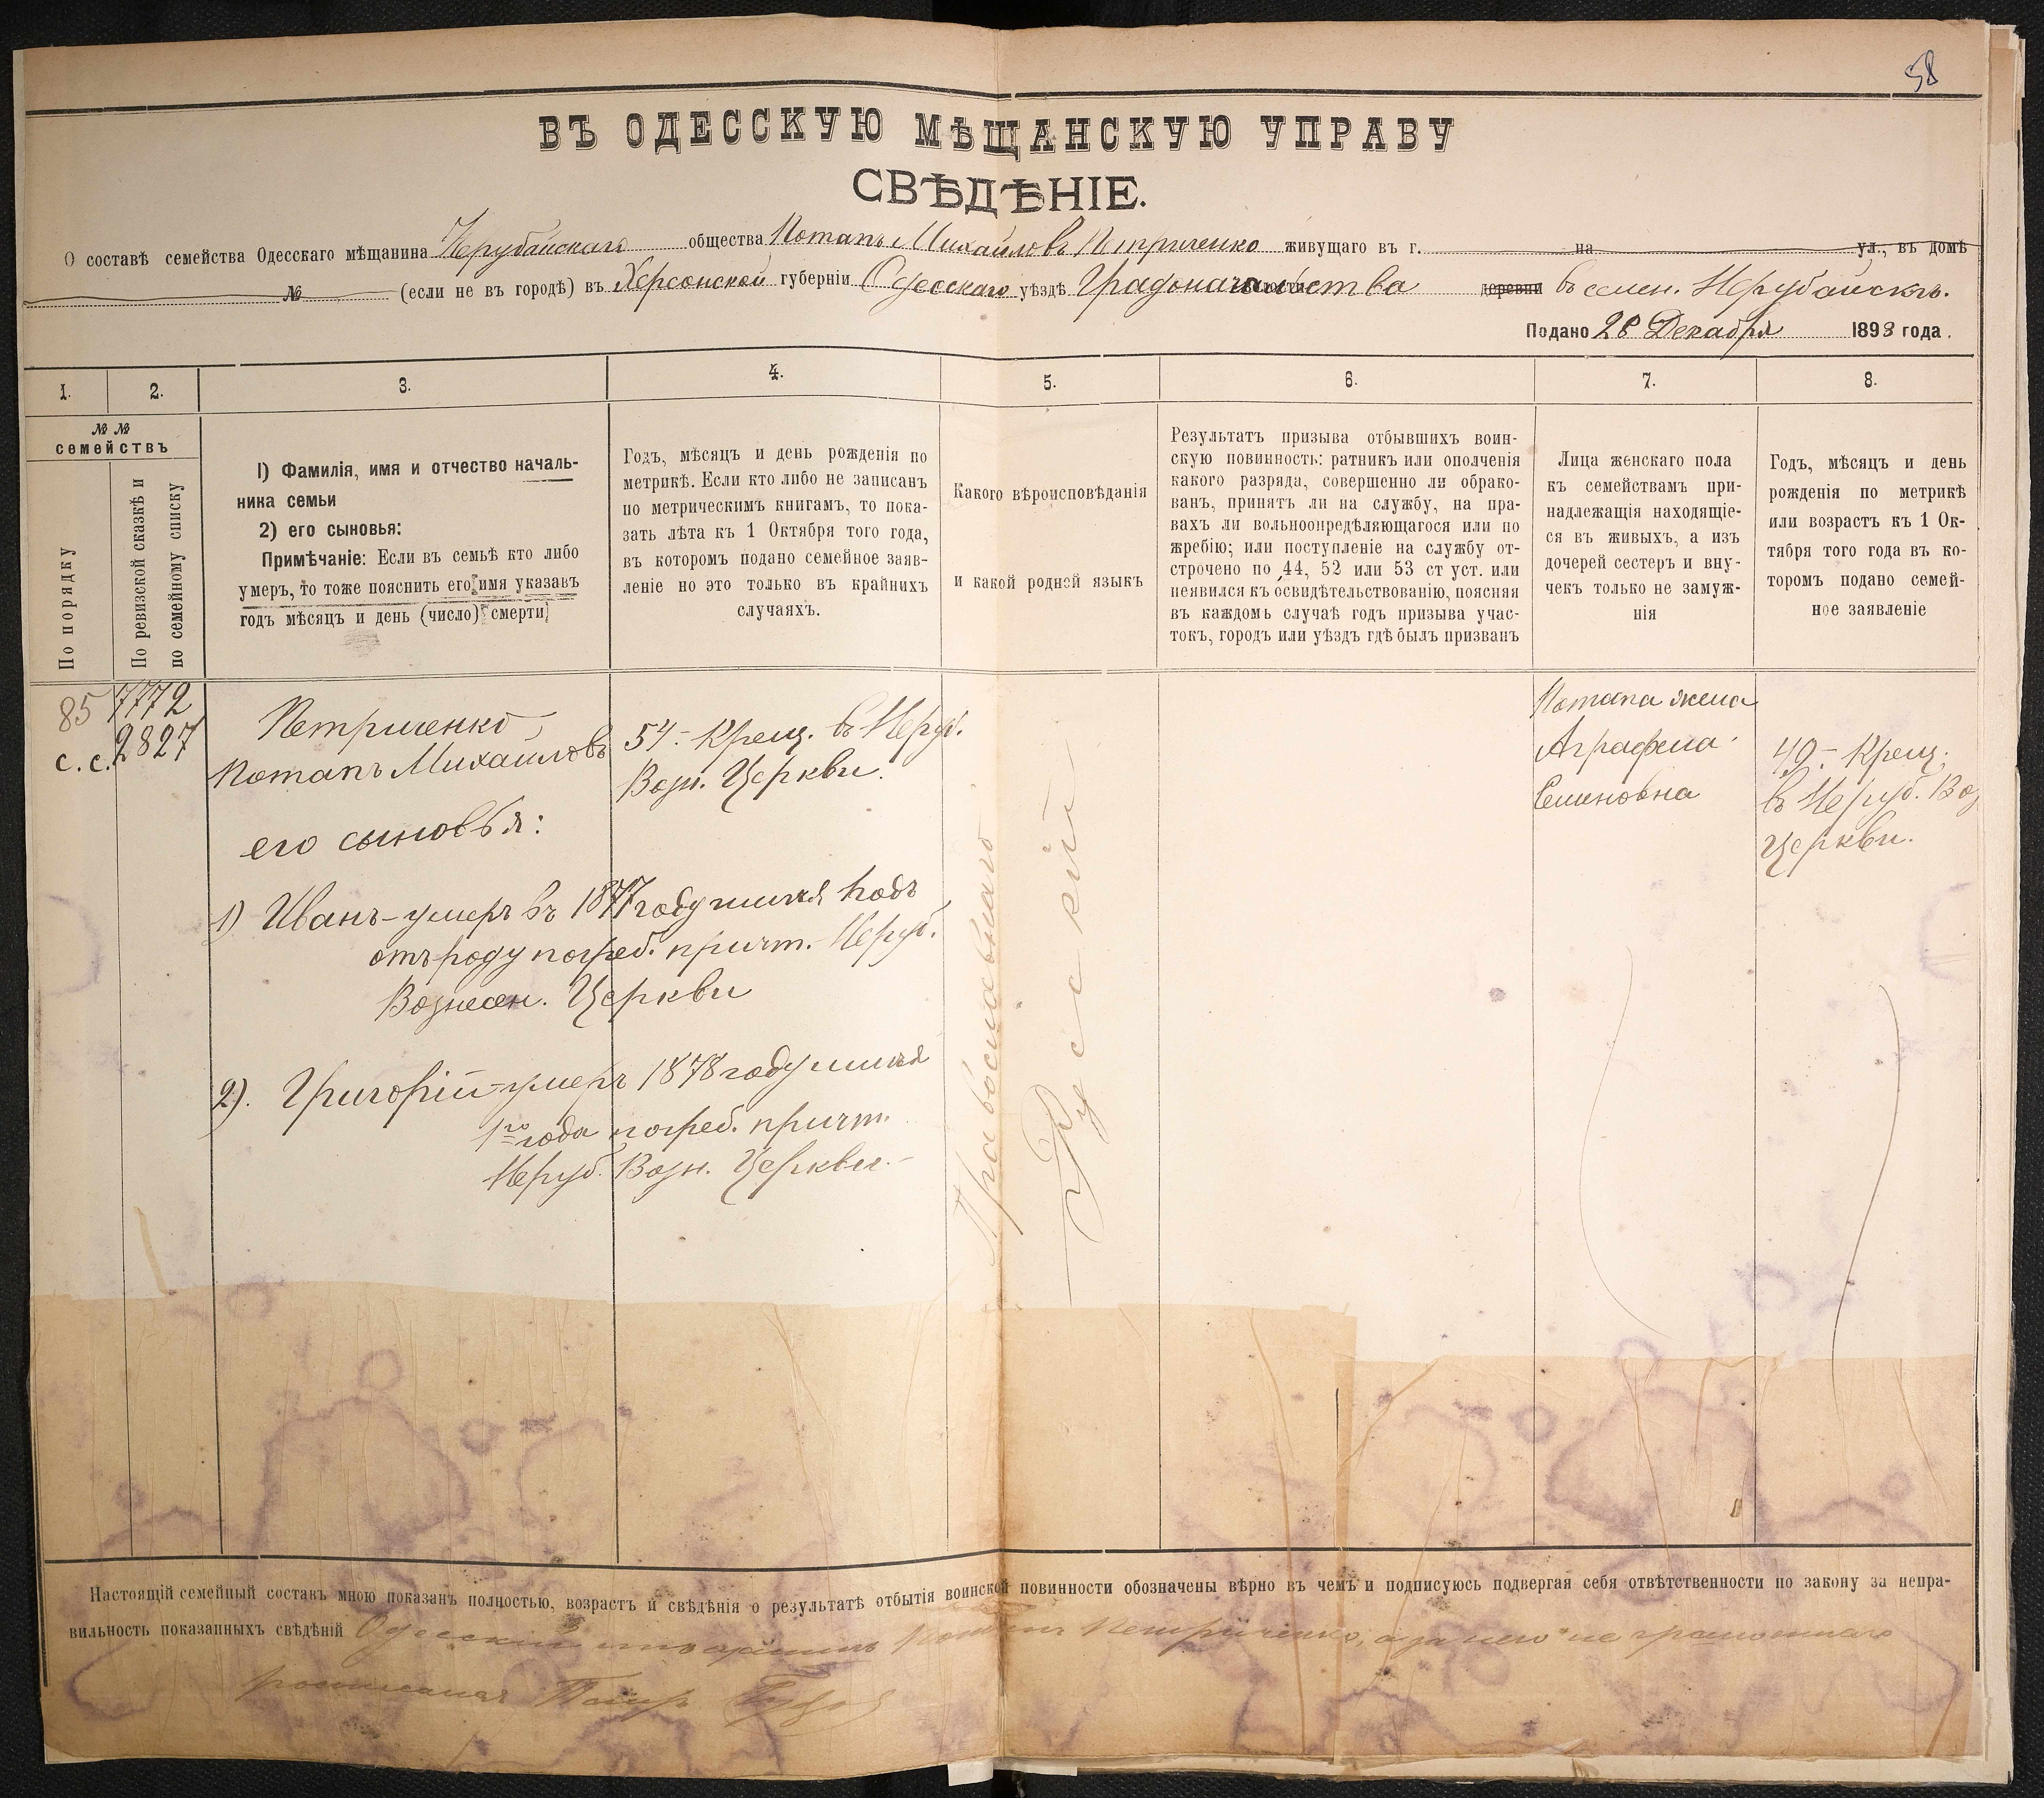 58
ВЪ ОДЕССКУЮ МѢЩАНСКУЮ УПРАВУ
СВѢДѢНІЕ.
О составѣ семейства Одесскаго мѣщанина Нерубайскаго общества Потапъ Михайловъ Петриченко живущаго въ г. на ул., въ домѣ
№ (если не въ городѣ) въ Херсонской губерніи Одесскаго уѣздѣ Градоначальства деревни въ селен. Нерубайскѣ.
Подано 28 Декабря 1893 года.
1. 2. 3. 4. 5. 6. 7. 8.
№№
семействъ
По порядку
По ревизской сказкѣ и
по семейному списку
1) Фамилія, имя и отчество началь-
ника семьи
2) его сыновья:
Примѣчаніе: Если въ семьѣ кто либо
умеръ, то тоже пояснить его имя указавъ
годъ мѣсяцъ и день (число) смерти
Годъ, мѣсяцъ и день рожденія по
метрикѣ. Если кто либо не записанъ
по метрическимъ книгамъ, то пока-
зать лѣта къ 1 Октября того года,
въ которомъ подано семейное заяв-
леніе но это только въ крайнихъ
случаяхъ.
Какого вѣроисповѣданія
и какой родной языкъ
Результатъ призыва отбывшихъ воин-
скую повинность: ратникъ или ополченія
какого разряда, совершенно ли обрако-
ванъ, принятъ ли на службу, на пра-
вахъ ли вольноопредѣляющагося или по
жребію; или поступленіе на службу от-
строчено по 44, 52 или 53 ст уст. или
неявился къ освидѣтельствованію, поясняя
въ каждомъ случаѣ годъ призыва учас-
токъ, городъ или уѣздъ гдѣ былъ призванъ
Лица женскаго пола
къ семействамъ при-
надлежащія находящіе-
ся въ живыхъ, а изъ
дочерей сестеръ и вну-
чекъ только не замуж-
нія
Годъ, мѣсяцъ и день
рожденія по метрикѣ
или возрастъ къ 1 Ок-
тября того года въ ко-
торомъ подано семей-
ное заявленіе
85
с. с.
7772
2827
Петриченко
Потапъ Михайловъ
его сыновья:
54 - Крещ. въ Неруб.
Возн. Церкви.
1) Иванъ - умеръ въ 1877 году имѣя годъ
отъ роду погреб. причт. Неруб.
Вознесен. Церкви
2). Григорій - умеръ 1878 году имѣя
1го года погреб. причт.
Неруб. Возн. Церкви. -
Православнаго
Рускій
Потапа жена
Аграфена
Семеновна
49 - Крещ.
въ Неруб. Воз
Церкви.
Настоящій семейный составъ мною показанъ полностью, возрастъ и свѣдѣнія о результатѣ отбытія воинской повинности обозначены вѣрно въ чемъ и подписуюсь подвергая себя отвѣтственности по закону за непра-
вильность показанныхъ свѣдѣній Одесскій мѣщанинъ Потапъ Петриченко, а за него не грамотнаго
росписался